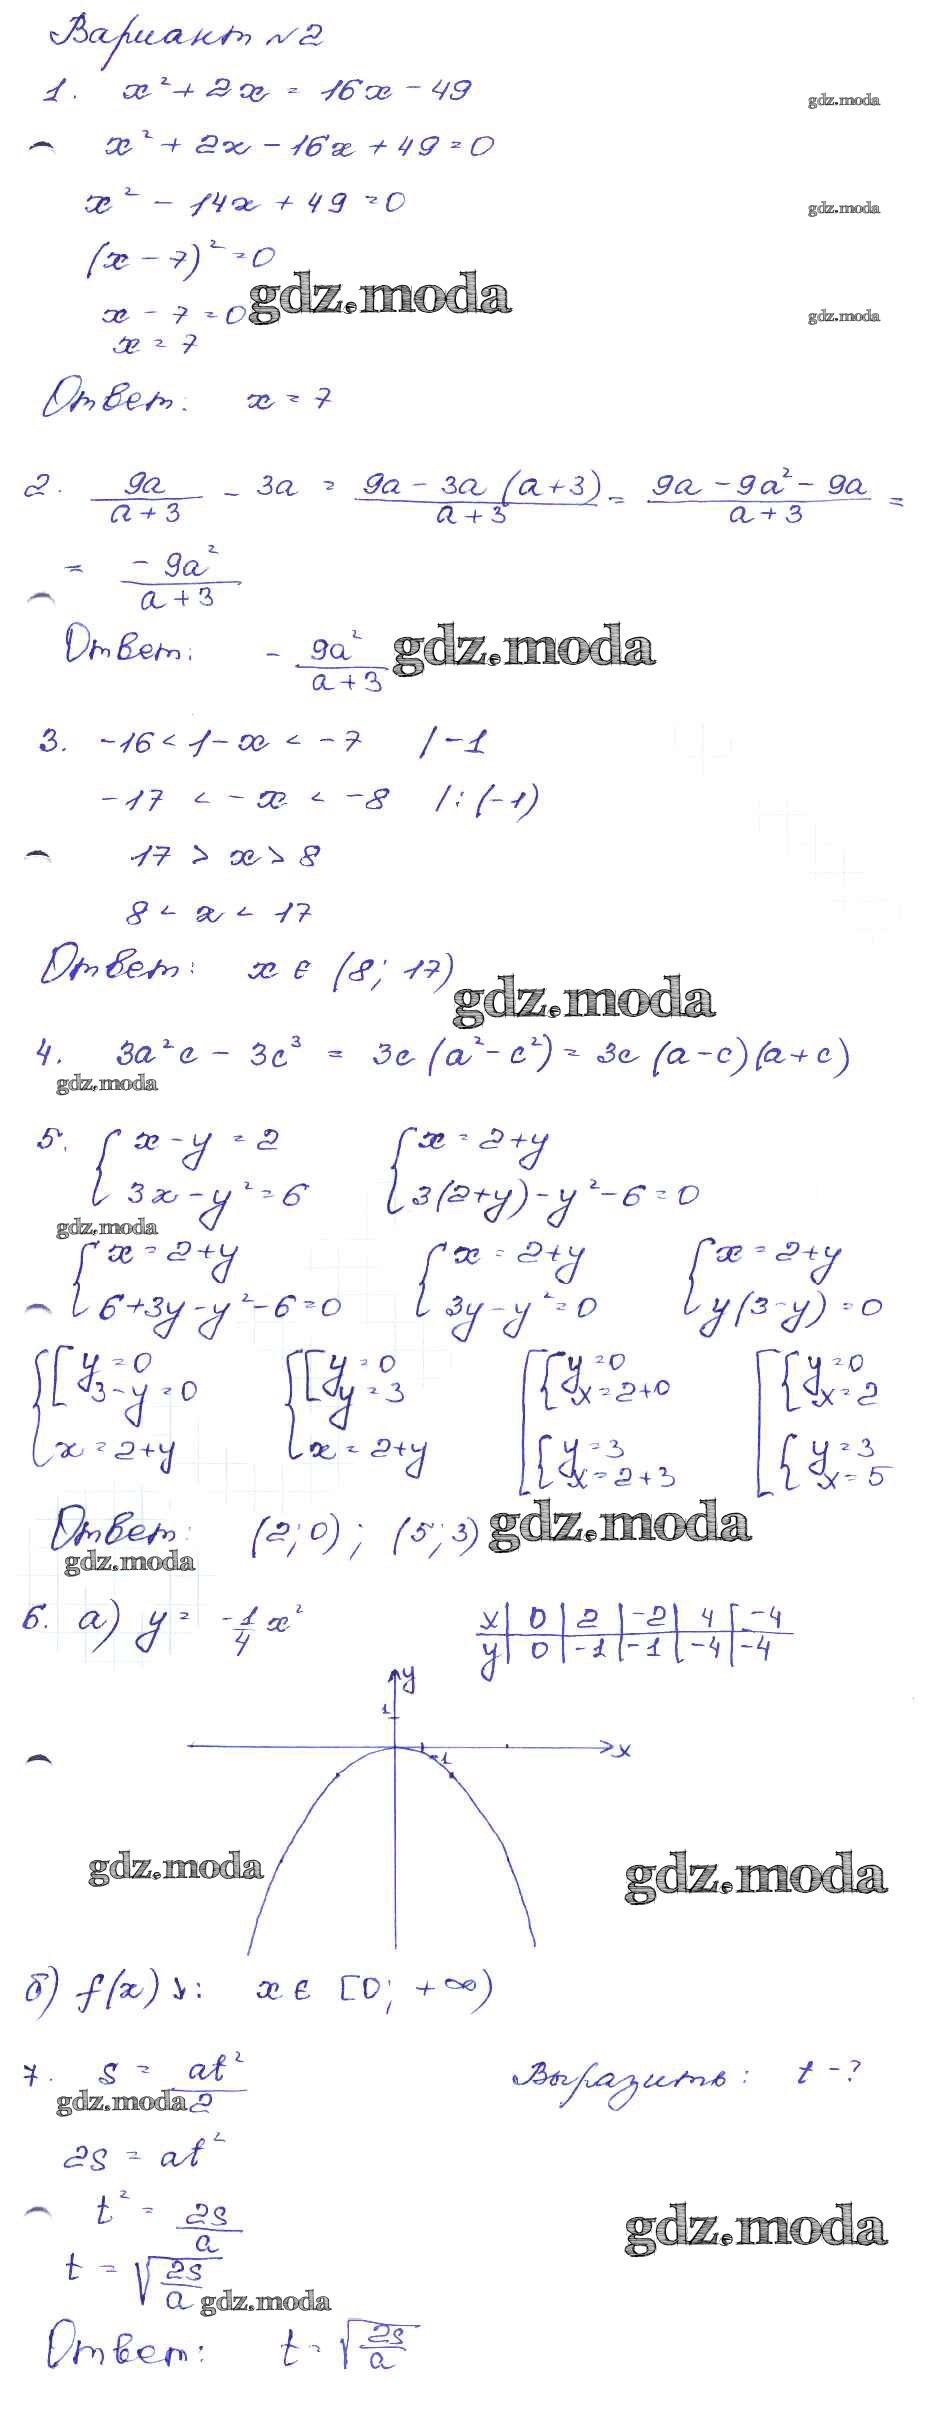 Вариант №2
1. x² + 2x = 16x - 49
gdz.moda
x² + 2x - 16x + 49 = 0
x² - 14x + 49 = 0
gdz.moda
(x - 7)² = 0
gdz.moda
x - 7 = 0
gdz.moda
x = 7
Ответ: x = 7
2. 9a/(a+3) - 3a = (9a - 3a(a+3))/(a+3) = (9a - 9a² - 9a)/(a+3) =
= -9a²/(a+3)
Ответ: - 9a²/(a+3)
gdz.moda
3. -16 < 1-x < -7 /-1
-17 < -x < -8 /:(-1)
17 > x > 8
8 < x < 17
Ответ: x ∈ (8; 17)
gdz.moda
4. 3a²c - 3c³ = 3c(a² - c²) = 3c(a-c)(a+c)
gdz.moda
5. { x - y = 2 { x = 2+y
3x - y² = 6 3(2+y) - y² - 6 = 0
gdz.moda
{ x = 2+y { x = 2+y { x = 2+y
6+3y-y²-6=0 3y-y²=0 y(3-y)=0
{ [ y=0 { [ y=0 [ { y=0 [ { y=0
3-y=0 y=3 x=2+0 x=2
x=2+y x=2+y { y=3 { y=3
x=2+3 x=5
Ответ: (2; 0); (5; 3)
gdz.moda
gdz.moda
6. а) y = -1/4 x²
x | 0 | 2 | -2 | 4 | -4
y | 0 | -1 | -1 | -4 | -4
y
1
x
1
gdz.moda
gdz.moda
б) f(x)↘: x ∈ [0; +∞)
7. s = at²/2 Выразить: t - ?
gdz.moda
2s = at²
t² = 2s/a
gdz.moda
t = √(2s/a)
gdz.moda
Ответ: t = √(2s/a)